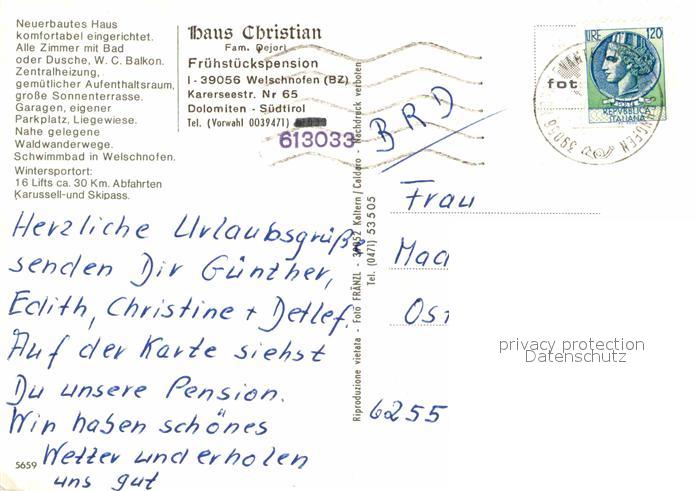 Neuerbautes Haus
komfortabel eingerichtet.
Alle Zimmer mit Bad
oder Dusche, W. C. Balkon.
Zentralheizung,
gemütlicher Aufenthaltsraum,
große Sonnenterrasse.
Garagen, eigener
Parkplatz, Liegewiese.
Nahe gelegene
Waldwanderwege.
Schwimmbad in Welschnofen.
Wintersportort:
16 Lifts ca. 30 Km. Abfahrten
Karussell-und Skipass.
Haus Christian
Fam. Dejori
Frühstückspension
I - 39056 Welschnofen (BZ)
Karerseestr. Nr 65
Dolomiten - Südtirol
Tel. (Vorwahl 0039471)
613033
Herzliche Urlaubsgrüße
senden Dir Günther,
Edith, Christine + Detlef.
Auf der Karte siehst
Du unsere Pension.
Wir haben schönes
Wetter und erholen
uns gut
5659
Riproduzione vietata - Foto FRÄNZL - 39052 Kaltern / Caldaro - Nachdruck verboten
Tel. (0471) 53505
BRD
LIRE 120
REPVBBLICA
ITALIANA
fot
39056
Frau
Maa
Os
6255
privacy protection
Datenschutz